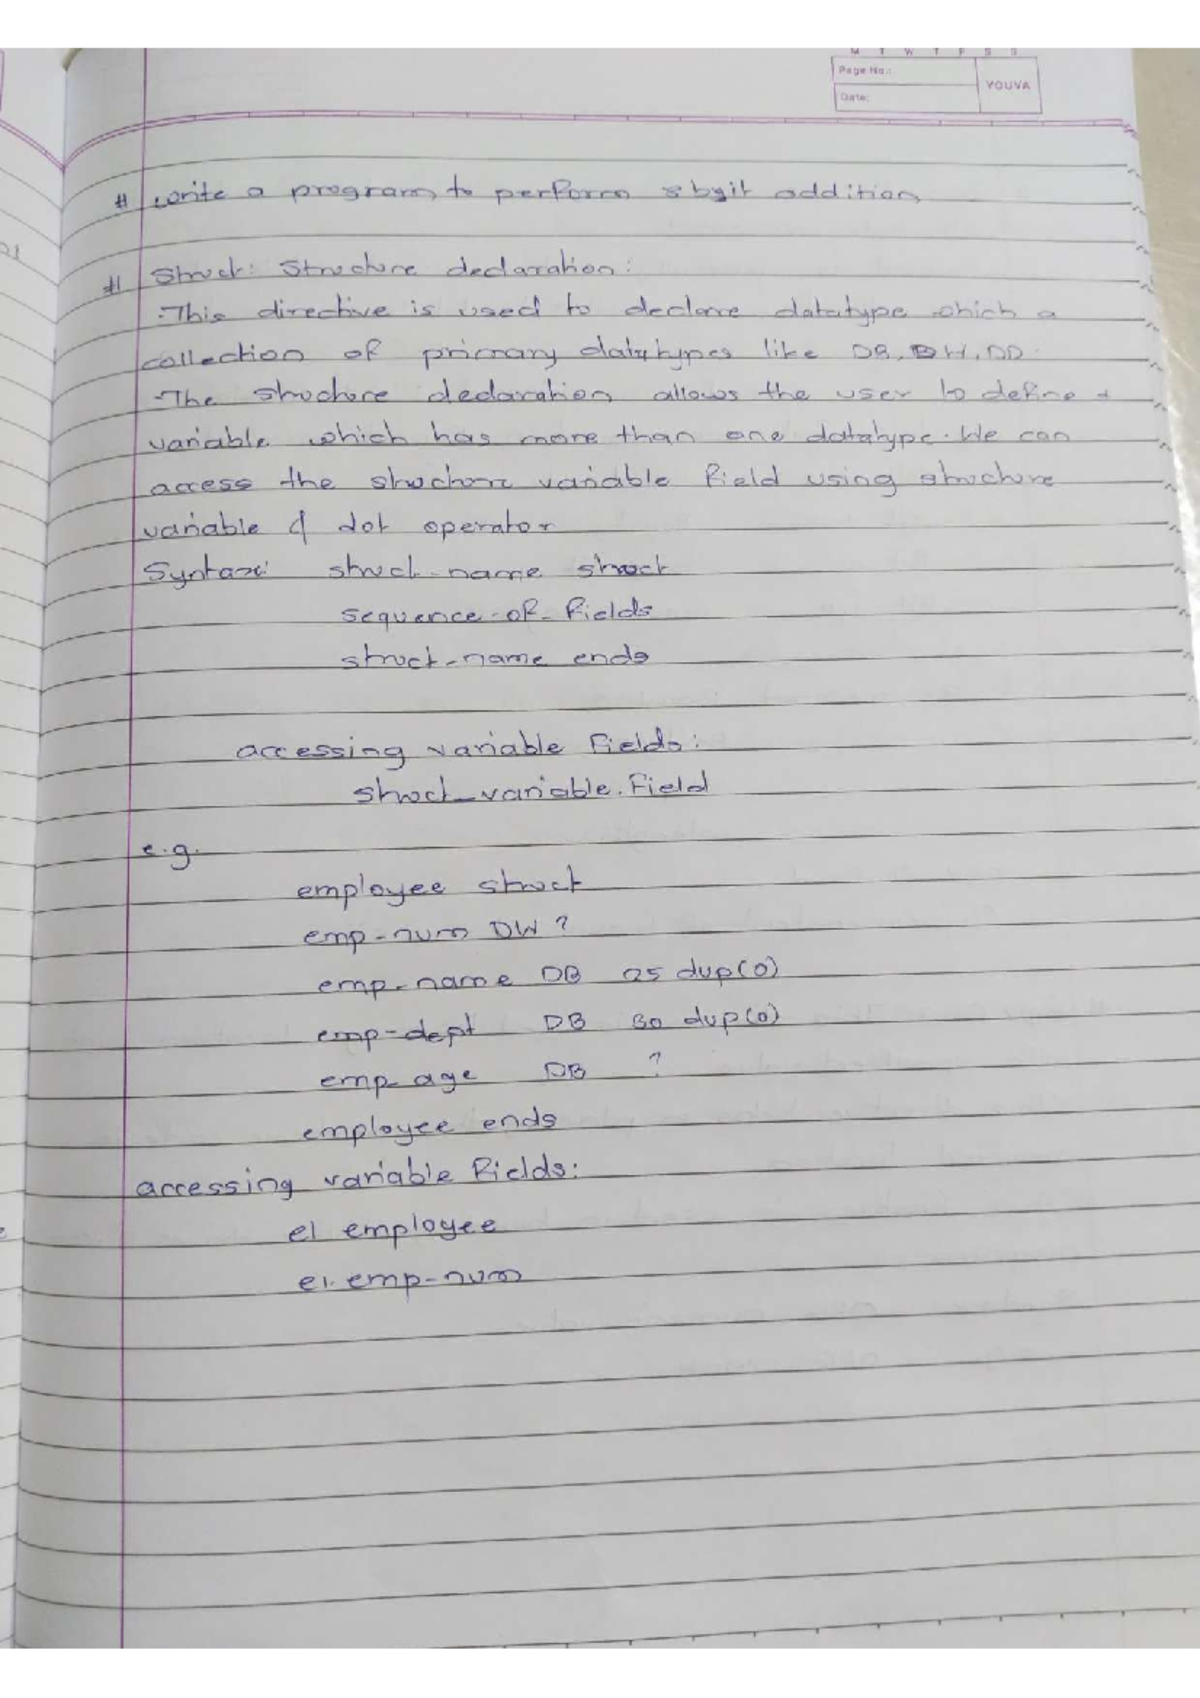 M T W T F S S
Page No.:
YOUVA
Date:
# write a program to perform 8 bit addition
# Struct: Structure declaration:
This directive is used to declare datatype which a
collection of primary datatypes like DB, DW, DD.
The structure declaration allows the user to define a
variable which has more than one datatype. We can
access the structure variable field using structure
variable & dot operator
Syntax: struct-name struct
sequence-of-fields
struct-name ends
accessing variable fields:
struct_variable.field
e.g.
employee struct
emp-num DW ?
emp-name DB 25 dup(0)
emp-dept DB 30 dup(0)
emp-age DB ?
employee ends
accessing variable fields:
e1 employee
e1.emp-num